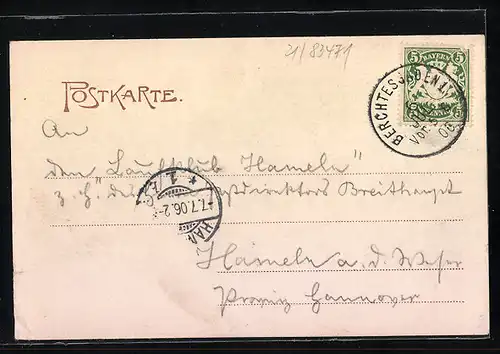 21/83471
POSTKARTE.
5 BAYERN 5
BERCHTESGADEN
VOR
06
An
den "Laufklub Hameln"
z. H. des Breithaupt
7.7.06.2-
HAM
Hameln a. d. Weser
Provinz Hannover